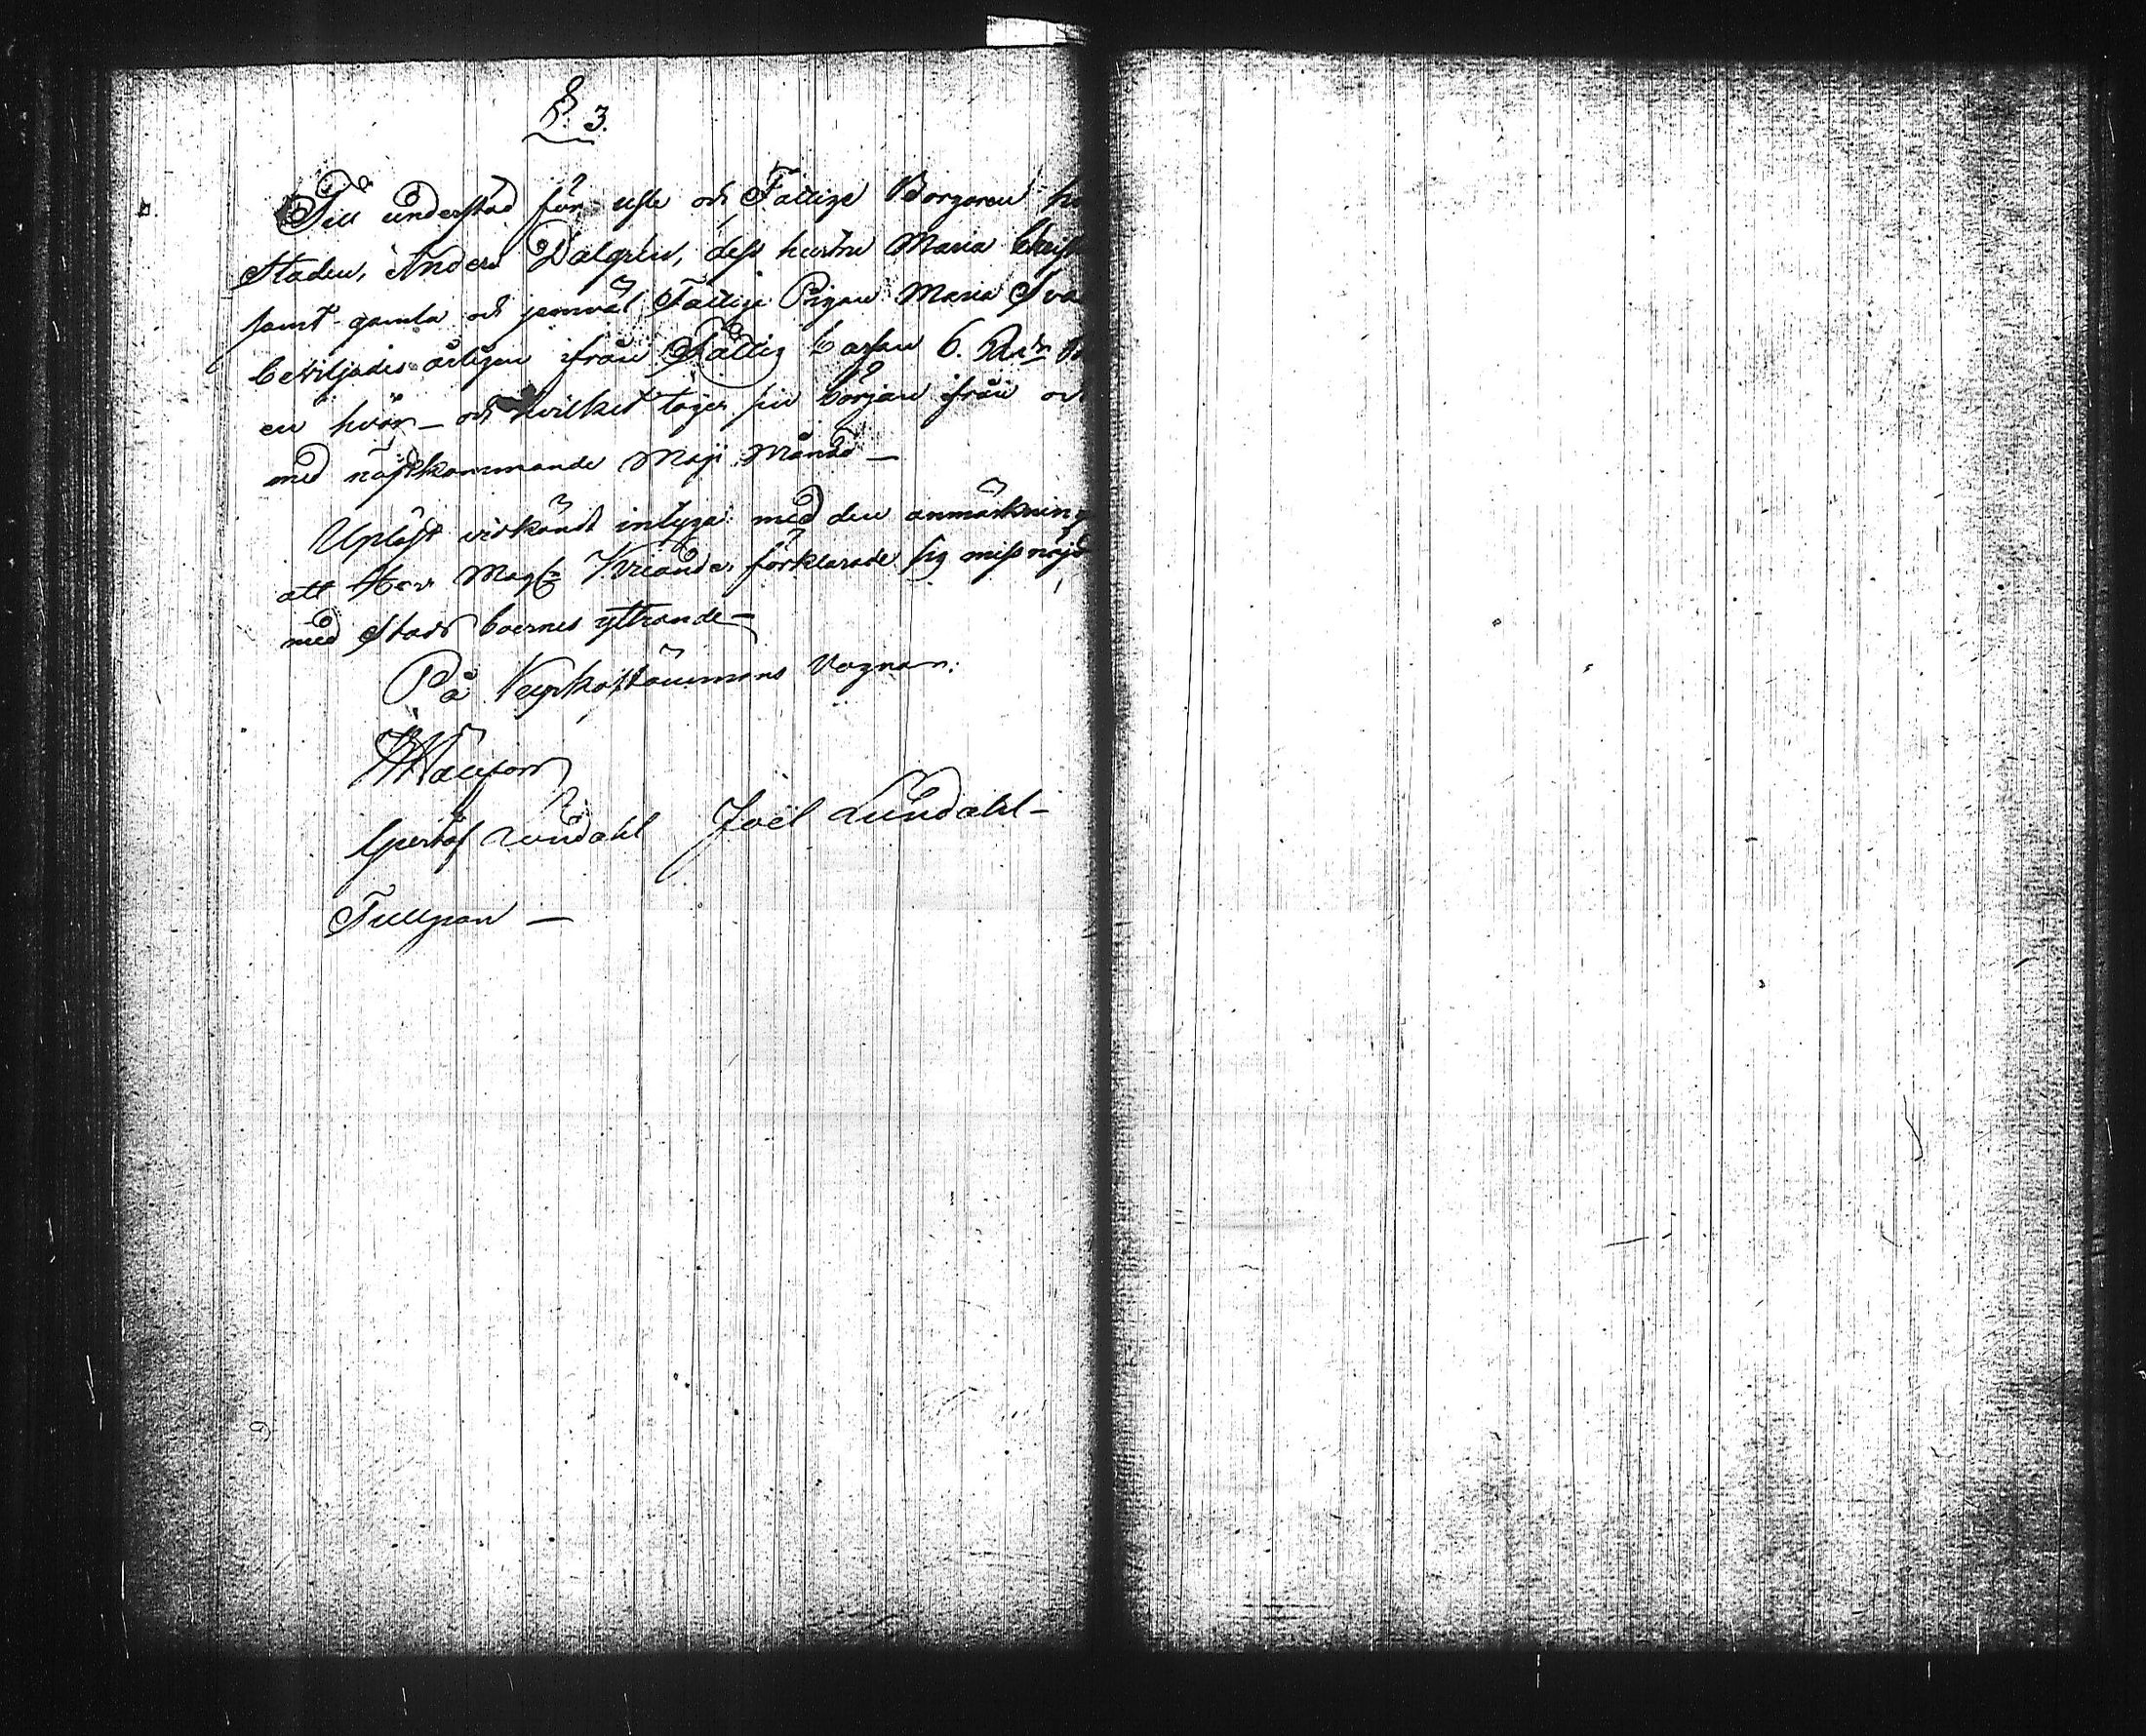 §. 3.
Till understöd för usle och Fattige Borgaren
Staden, Anders Dalgren, dess hustru Maria
samt gamla och jemväl Fattige Pigan Maria Sva
beviljades årligen ifrån Fattig Cassan 6. Rdr
en hvar – och hvilket tager sin början ifrån och
med nästkommande Maji Månad –
Uplast vidkändt intyga med den anmärkning
att Herr Mag Kriander förklarade sig missnöjd
med Stads boernes yttrande –
På Kyrkostämmans vagnar:
Gustaf Lundahl Joël Lundahl –